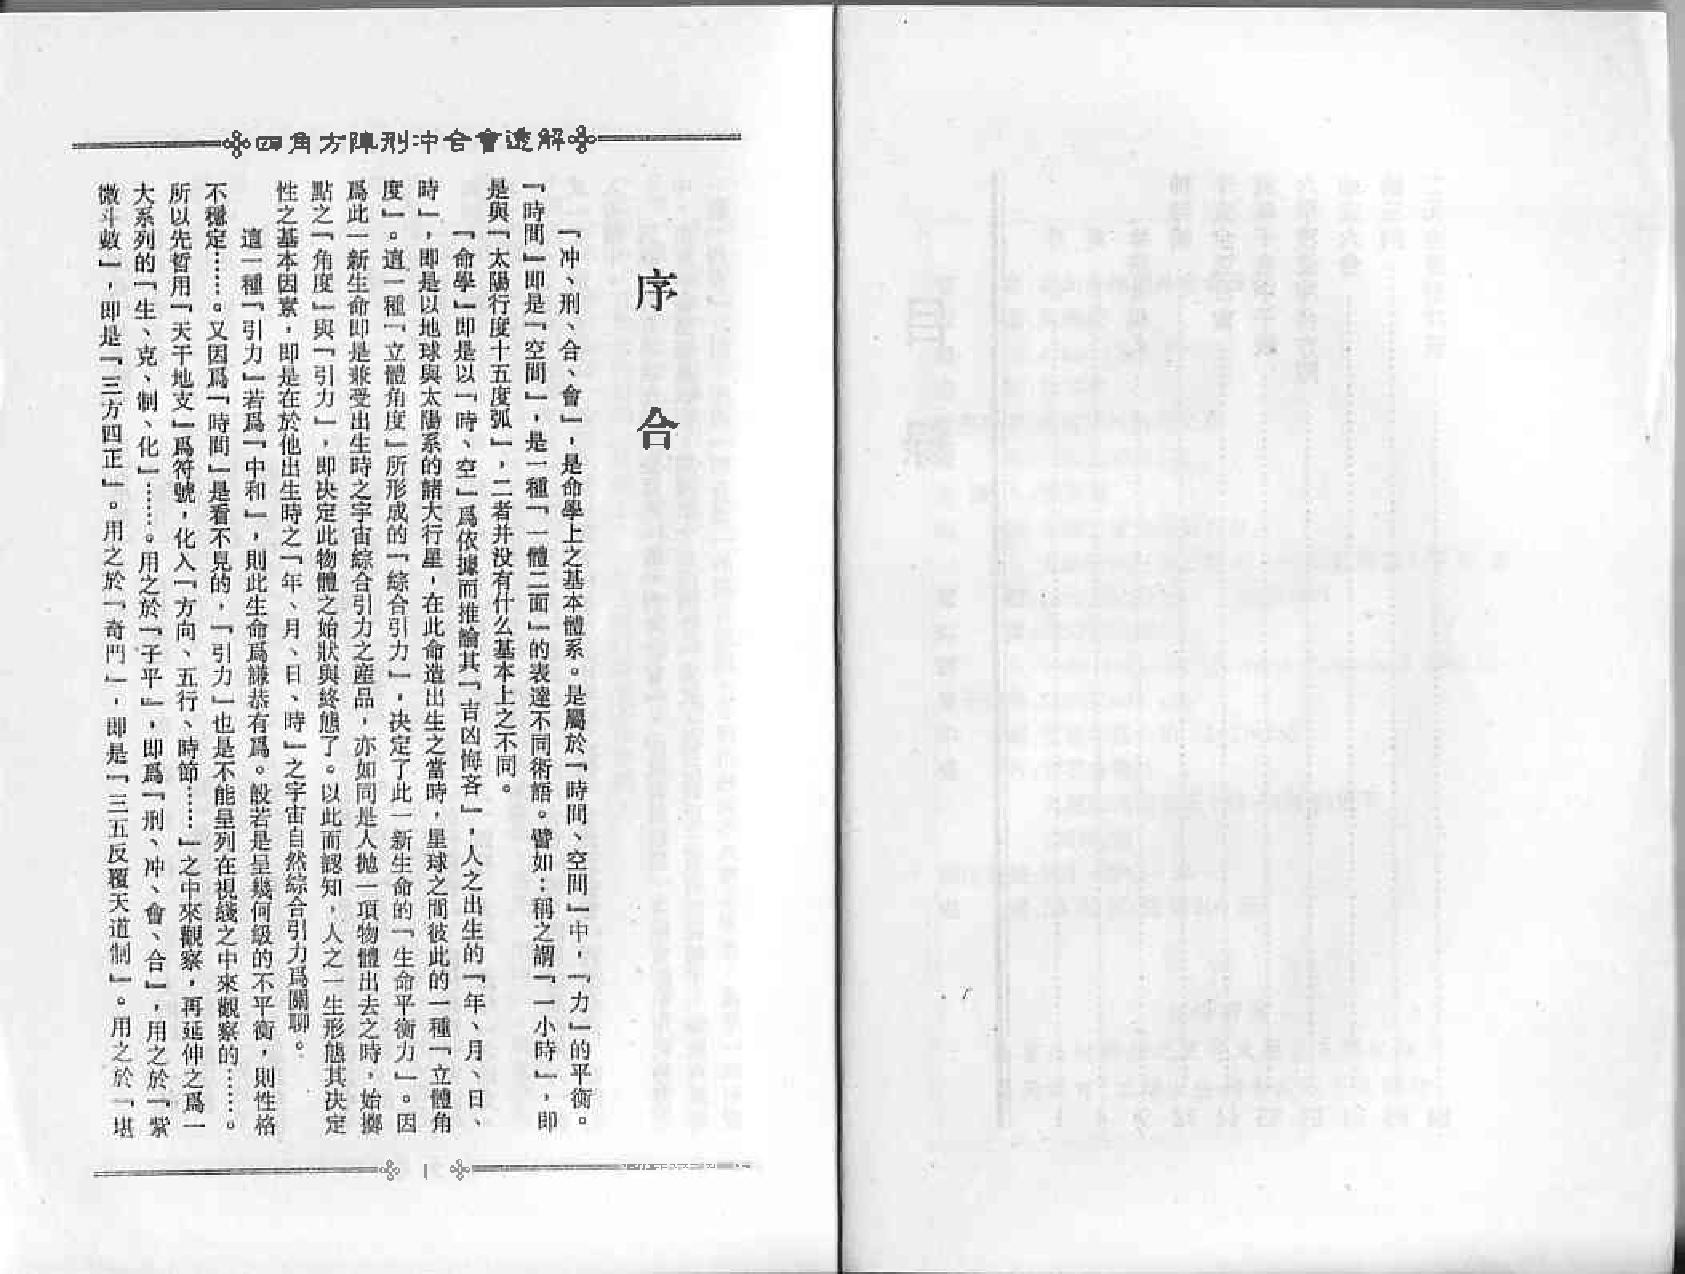 四角方陣刑冲合會透解
序合
「冲、刑、合、會」，是命學上之基本體系。是屬於「時間、空間」中，「力」的平衡。
「時間」即是「空間」，是一種「一體二面」的表達不同術語。譬如：稱之謂「一小時」，即
是與「太陽行度十五度弧」，二者并没有什么基本上之不同。
「命學」即是以「時、空」爲依據而推論其「吉凶悔吝」，人之出生的「年、月、日、
時」，即是以地球與太陽系的諸大行星，在此命造出生之當時，星球之間彼此的一種「立體角
度」。這一種「立體角度」所形成的「綜合引力」，決定了此一新生命的「生命平衡力」。因
爲此一新生命即是兼受出生時之宇宙綜合引力之產品，亦如同是人拋一項物體出去之時，始擲
點之「角度」與「引力」，即決定此物體之始狀與終態了。以此而認知，人之一生形態其決定
性之基本因素，即是在於他出生時之「年、月、日、時」之宇宙自然綜合引力爲關聊。
這一種「引力」若爲「中和」，則此生命爲謙恭有爲。般若是呈幾何級的不平衡，則性格
不穩定……。又因爲「時間」是看不見的，「引力」也是不能呈列在視綫之中來觀察的……。
所以先哲用「天干地支」爲符號，化入「方向、五行、時節……」之中來觀察，再延伸之爲一
大系列的「生、克、制、化」……。用之於「子平」，即爲「刑、冲、會、合」，用之於「紫
微斗數」，即是「三方四正」。用之於「奇門」，即是「三五反覆天道制」。用之於「堪
1